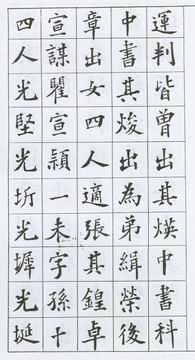 運判皆曾出其煐中書科
中書其焌出為弟緝榮後
章出女四人適張其鍠卓
宣謀瞿宣穎一未字孫十
四人光堅光圻光墀光埏